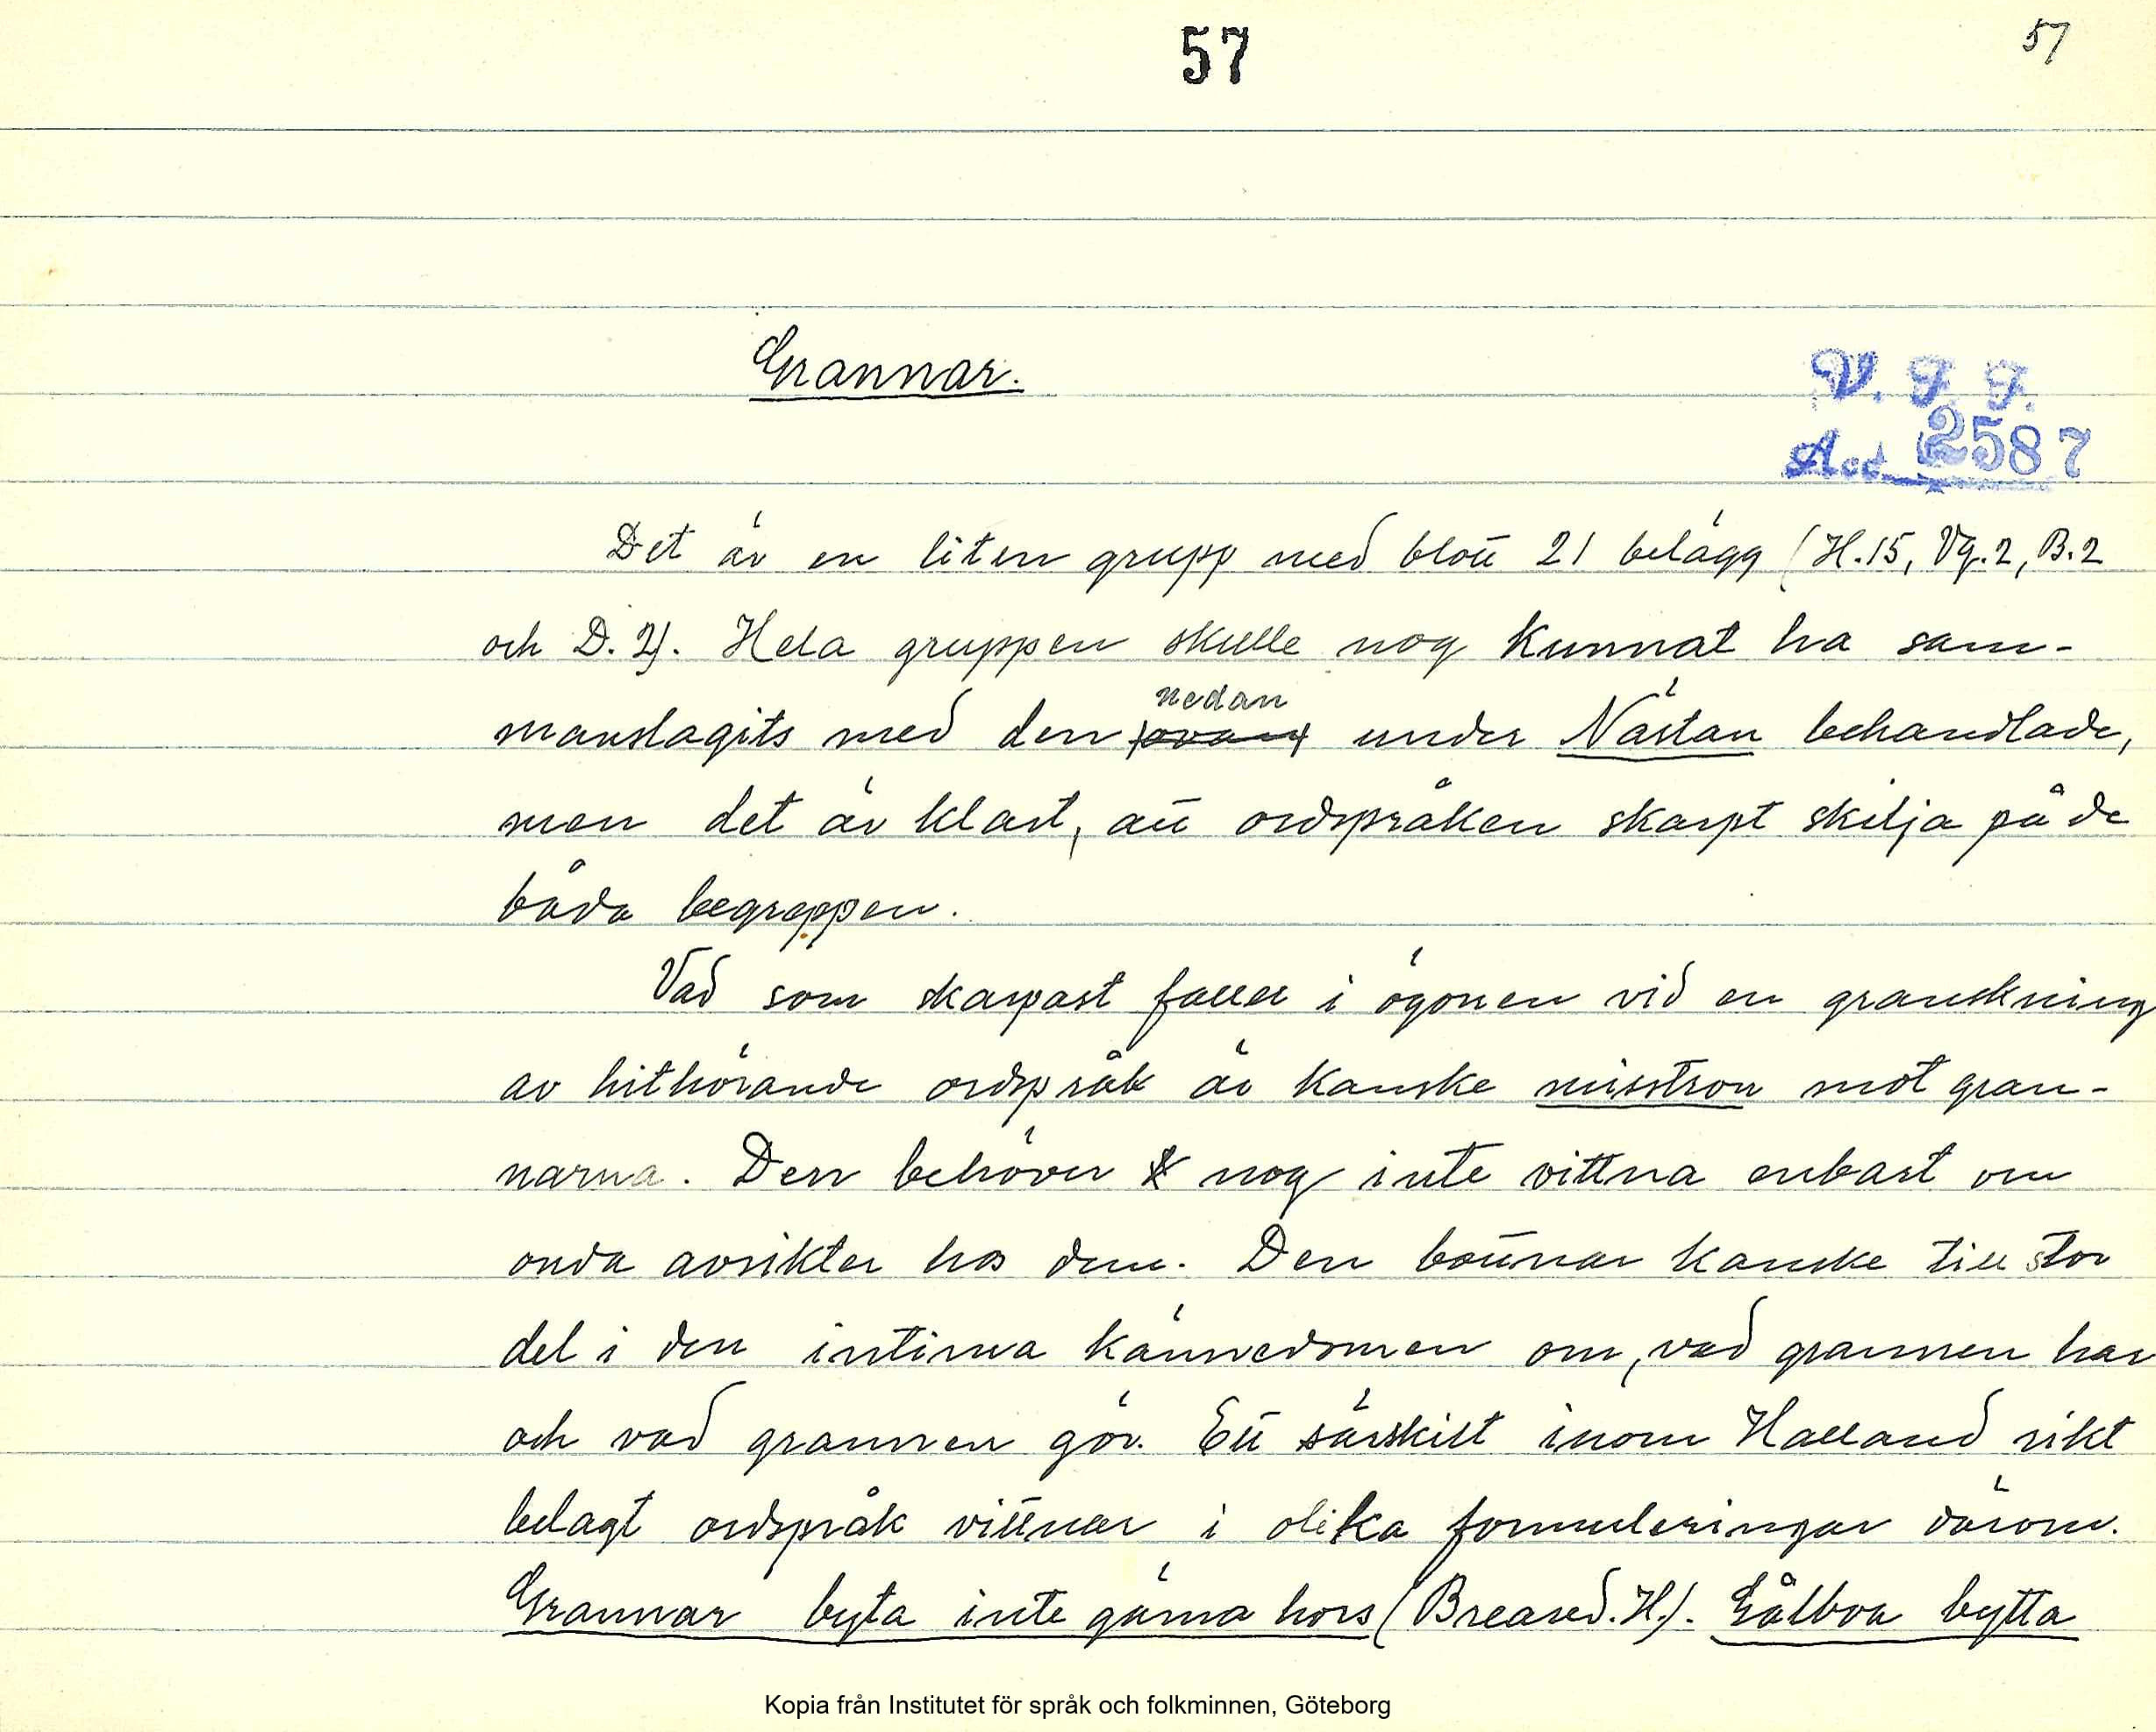 57
57
Grannar.
V. F. F.
Acc. 2587
Det är en liten grupp med blott 21 belägg (H.15, Vg.2, B.2
och D.2). Hela gruppen skulle nog kunnat ha sam-
nedan
manslagits med den (ovan) under Nästan behandlade,
men det är klart, att ordspråken skarpt skilja på de
båda begreppen.
Vad som skarpast faller i ögonen vid en granskning
av hithörande ordspråk är kanske misstron mot gran-
narna. Den behöver nog inte vittna enbart om
onda avsikter hos dem. Den bottnar kanske till stor
del i den intima kännedomen om, vad grannen har
och vad grannen gör. Ett särskilt inom Halland rikt
belagt ordspråk vittnar i olika formuleringar därom.
Grannar byta inte gärna hors (Breared. H.). bytta
Kopia från Institutet för språk och folkminnen, Göteborg